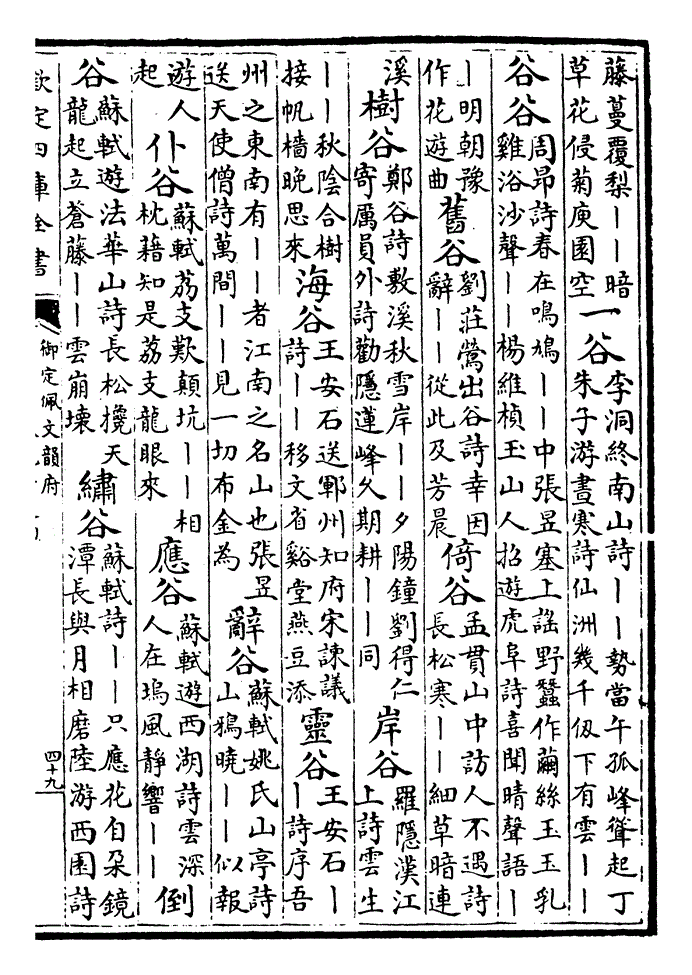 藤蔓覆梨丨丨暗
草花侵菊庾園空
一谷
李洞終南山詩丨丨勢當午孤峰聳起丁
朱子游晝寒詩仙洲幾千仭下有雲丨丨
谷谷
周昂詩春在鳴鳩丨丨中張昱塞上謡野蠶作繭絲玉玉乳
雞浴沙聲丨丨楊維楨玉山人招遊虎阜詩喜聞晴聲語丨
丨明朝豫
作花遊曲
舊谷
劉莊鶯出谷詩幸因
辭丨丨從此及芳晨
倚谷
孟貫山中訪人不遇詩
長松寒丨丨細草暗連
溪
樹谷
鄭谷詩敷溪秋雪岸丨丨夕陽鐘劉得仁
寄厲員外詩勸隱蓮峰久期耕丨丨同
岸谷
羅隱漢江
上詩雲生
丨丨秋陰合樹
接帆檣晚思來
海谷
王安石送鄆州知府宋諫議
詩丨丨移文省谿堂燕豆添
靈谷
王安石丨
丨詩序吾
州之東南有丨丨者江南之名山也張昱
送天使僧詩萬間丨丨見一切布金為
辭谷
蘇軾姚氏山亭詩
山鴉曉丨丨似報
遊人
起
仆谷
蘇軾荔支歎顛坑丨丨相
枕藉知是荔支龍眼來
應谷
蘇軾遊西湖詩雲深
人在塢風靜響丨丨
倒
谷
蘇軾遊法華山詩長松攙天
龍起立蒼藤丨丨雲崩壞
繡谷
蘇軾詩丨丨只應花自朶鏡
潭長與月相磨陸游西園詩
欽定四庫全書
御定佩文韻府
四十九